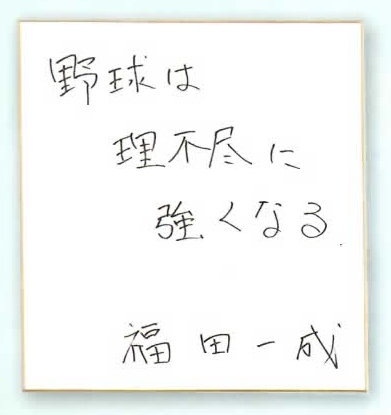 野球は
理不尽に
強くなる.
福田一成